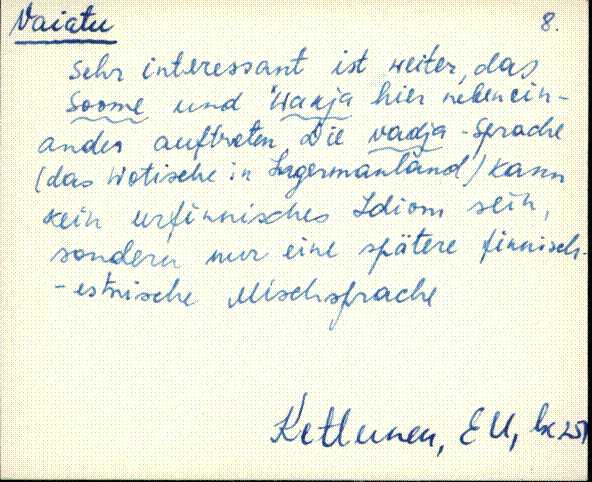 Vaiatu
8.
Sehr interessant ist weiter, das
Soome und Wadja hier nebenein-
ander auftreten. Die vadja-Sprache
(das Wotische in Ingermanland) kann
kein urfinnisches Idiom sein,
sondern nur eine spätere finnisch-
-estnische Mischsprache
Kettunen, EU, lk 251